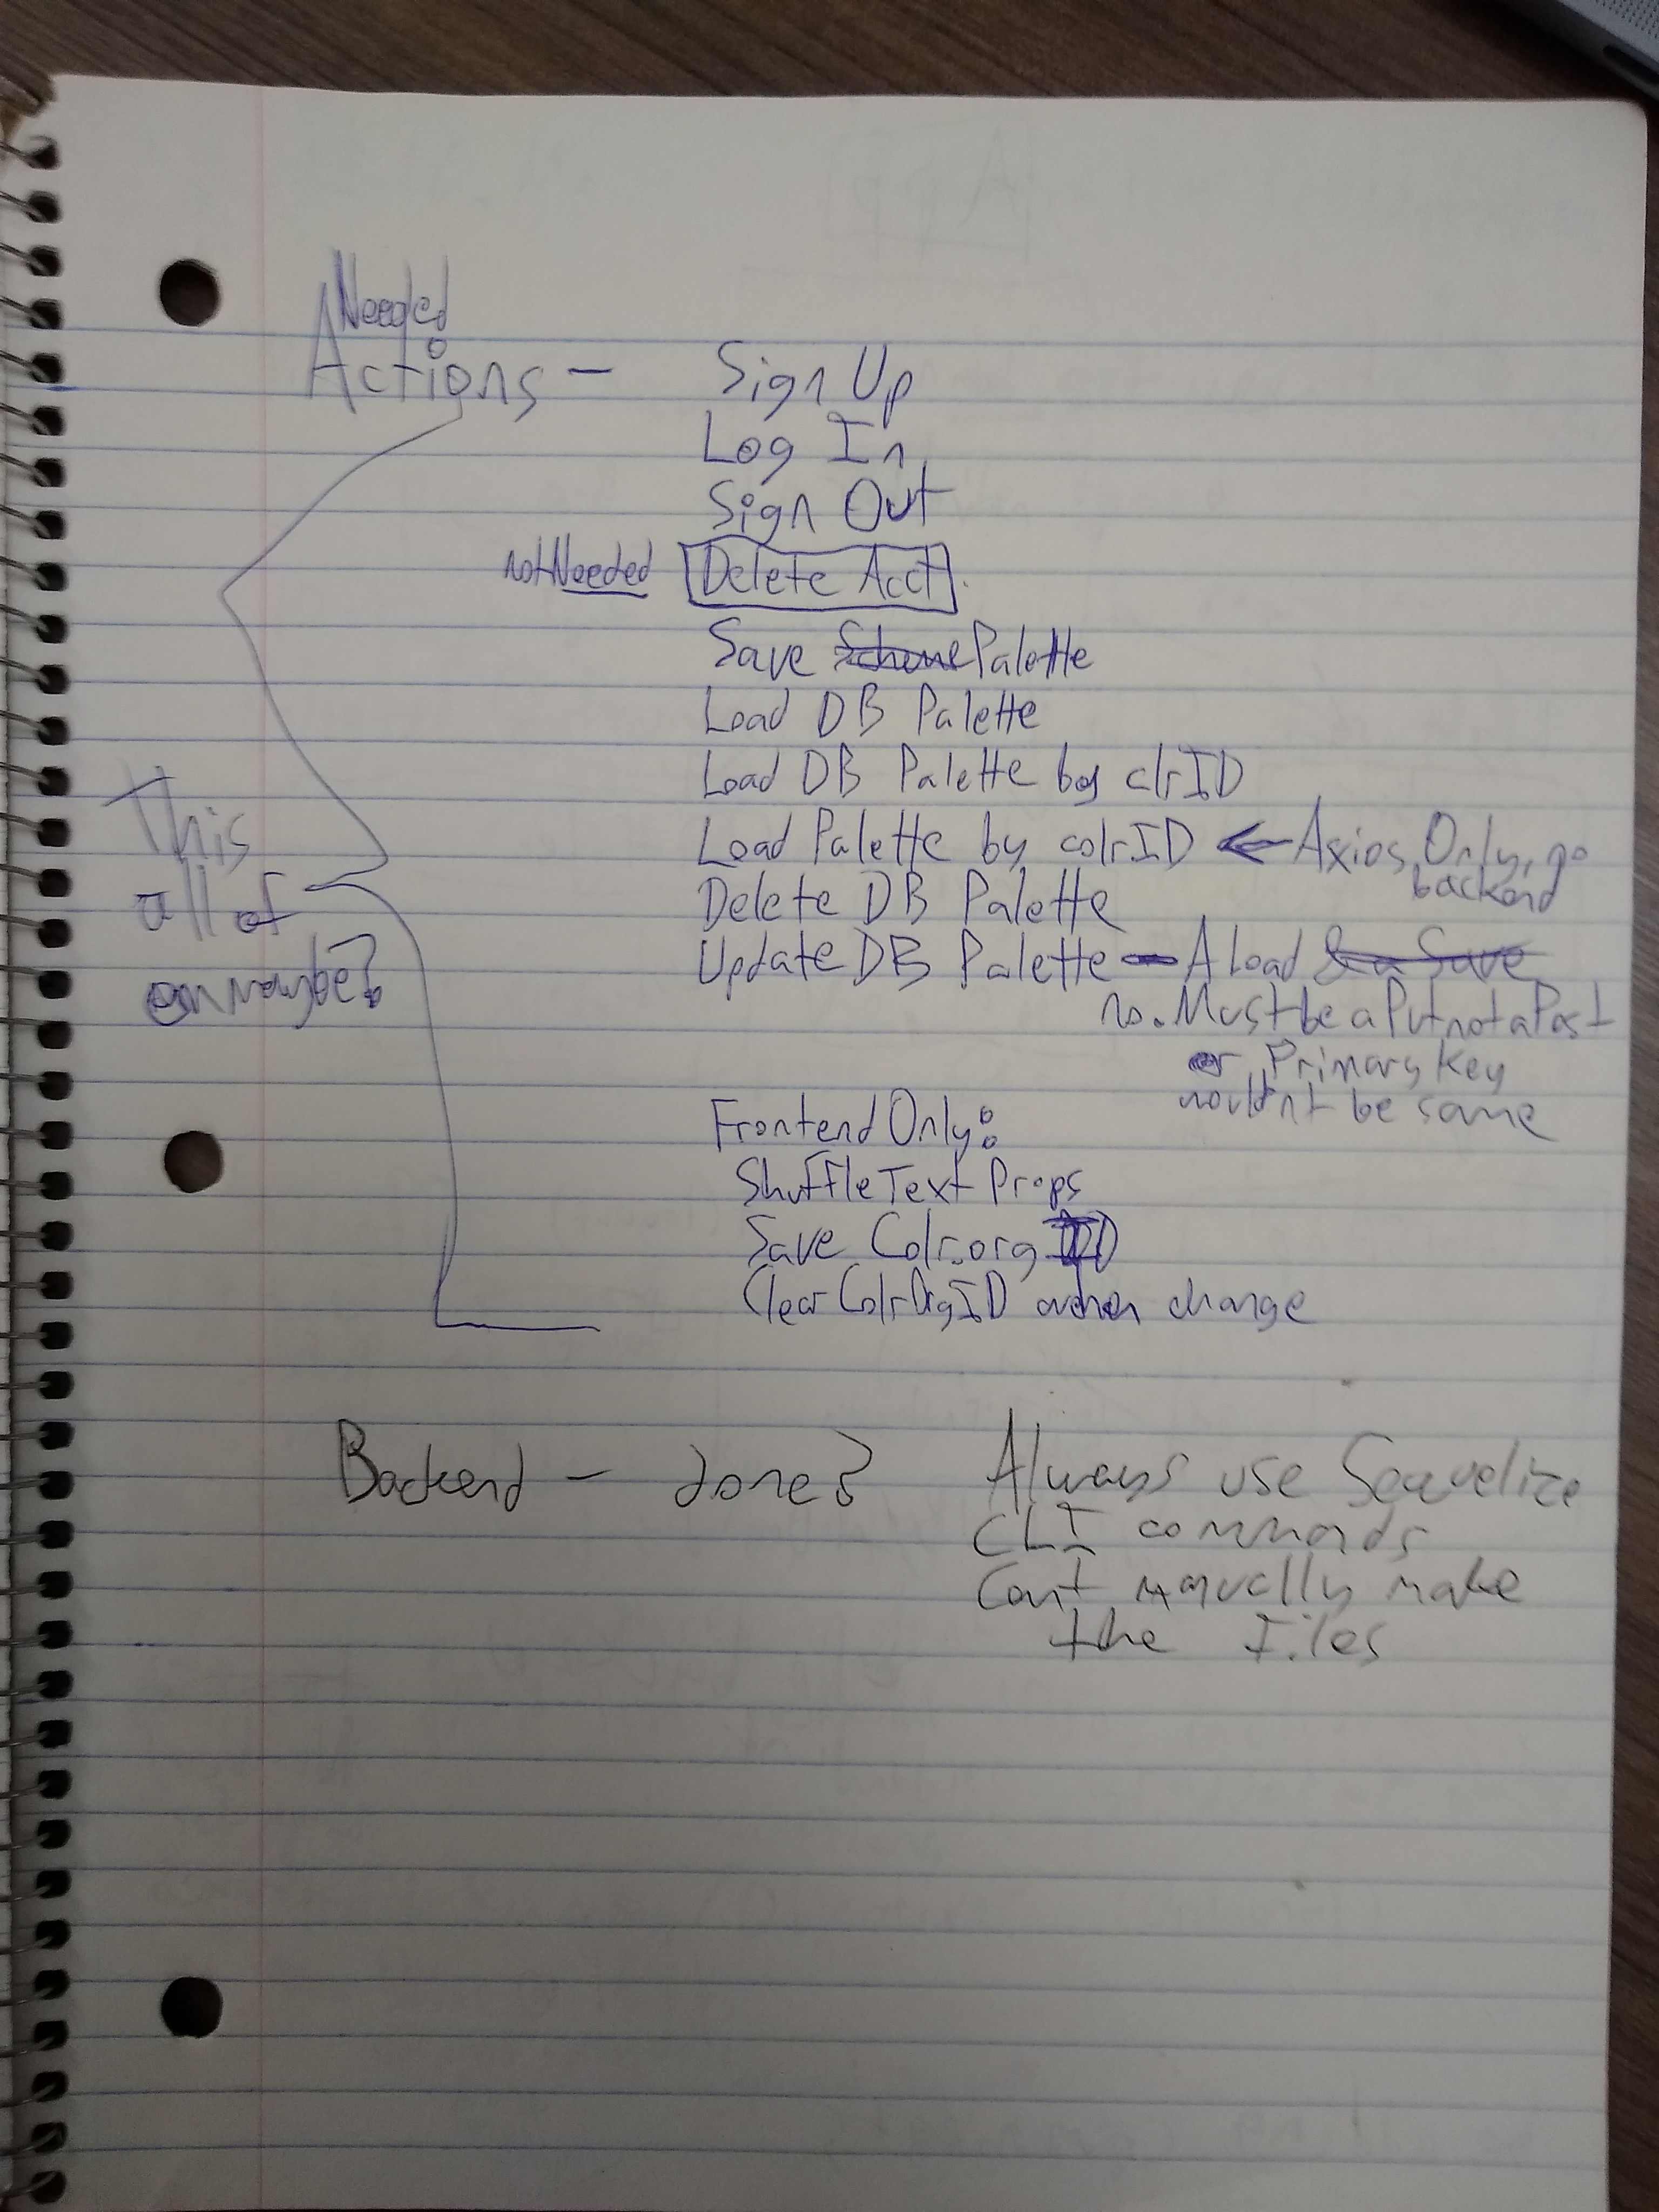 Needed
Actions - Sign Up
Log In
Sign Out
not Needed Delete Acct.
Save Scheme Palette
Load DB Palette
Load DB Palette by clrID
Load Palette by colrID ← Axios Only, no
backend
Delete DB Palette
Update DB Palette - A Load & a Save
no. Must be a Put not a Post
or Primary Key
wouldn't be same
This
all of
maybe?
Frontend Only:
Shuffle Text Props
Save Colr.org ID
Clear ColrOrgID when change
Backend - done? Always use Sequelize
CLI commands
Cant manually make
the files
App